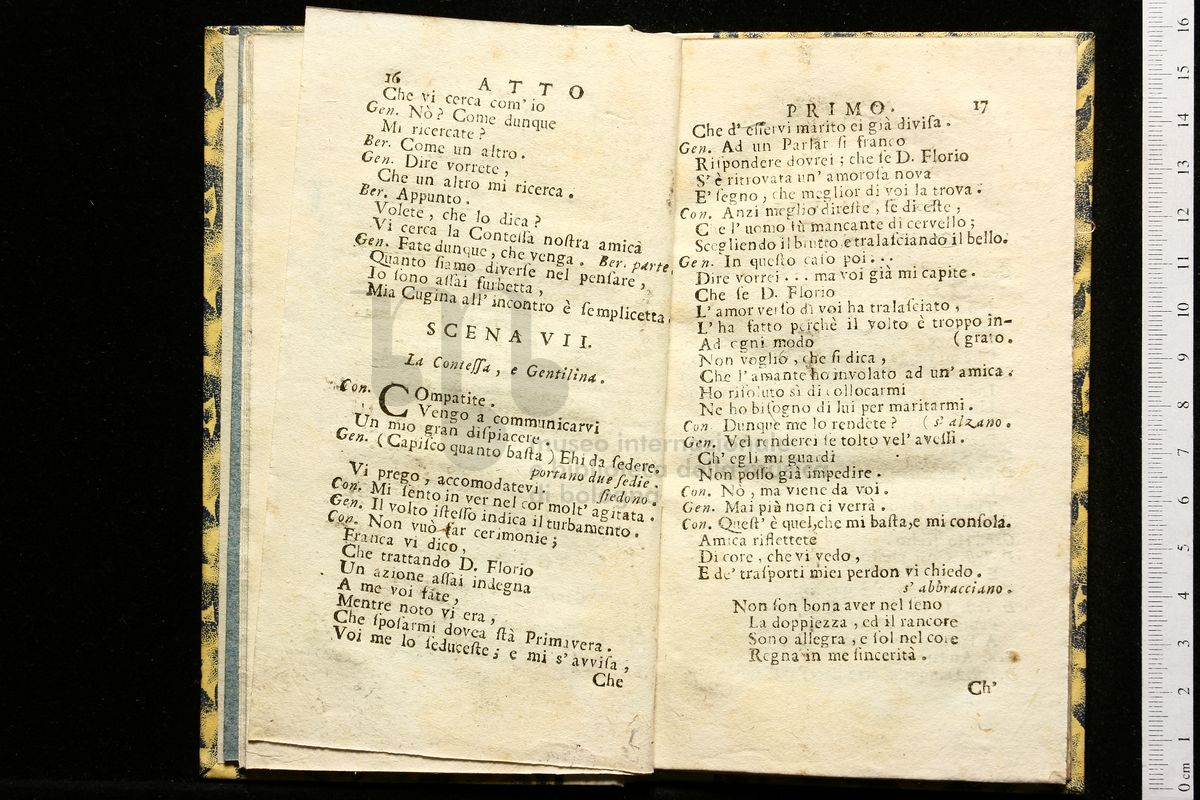 16 ATTO
Che vi cerca com' io
Gen. Nò? Come dunque
Mi ricercate?
Ber. Come un altro.
Gen. Dire vorrete,
Che un altro mi ricerca.
Ber. Appunto.
Volete, che lo dica?
Vi cerca la Contessa nostra amica
Gen. Fate dunque, che venga. Ber. parte.
Quanto siamo diverse nel pensare,
Io sono assai furbetta,
Mia Cugina all' incontro è semplicetta.
SCENA VII.
La Contessa, e Gentilina.
Con. COmpatite.
Vengo a communicarvi
Un mio gran dispiacere.
Gen. (Capisco quanto basta) Ehi da sedere.
portano due sedie.
Vi prego, accomodatevi. siedono.
Con. Mi sento in ver nel cor molt' agitata.
Gen. Il volto istesso indica il turbamento.
Con. Non vuò far cerimonie;
Franca vi dico,
Che trattando D. Florio
Un azione assai indegna
A me voi fate,
Mentre noto vi era,
Che sposarmi dovea stà Primavera.
Voi me lo seduceste; e mi s'avvisa,
Che
PRIMO. 17
Che d' esservi marito ei già divisa.
Gen. Ad un Parlar si franco
Rispondere dovrei; che se D. Florio
S' è ritrovata un' amorosa nova
E' segno, che meglior di voi la trova.
Con. Anzi meglio direste, se diceste,
Che l' uomo fù mancante di cervello;
Scegliendo il brutto e tralasciando il bello.
Gen. In questo caso poi...
Dire vorrei... ma voi già mi capite.
Che se D. Florio
L' amor verso di voi ha tralasciato,
L' ha fatto perchè il volto è troppo in-
Ad ogni modo (grato.
Non voglio, che si dica,
Che l'amante ho involato ad un' amica.
Ho risoluto sì di collocarmi
Ne ho bisogno di lui per maritarmi.
Con. Dunque me lo rendete? (s' alzano.
Gen. Vel renderei se tolto vel' avessi.
Ch' egli mi guardi
Non posso già impedire.
Con. Nò, ma viene da voi.
Gen. Mai più non ci verrà.
Con. Quest' è quel, che mi basta, e mi consola.
Amica riflettete
Di core, che vi vedo,
E de' trasporti miei perdon vi chiedo.
s' abbracciano.
Non son bona aver nel seno
La doppiezza, ed il rancore
Sono allegra, e sol nel core
Regna in me sincerità.
Ch'